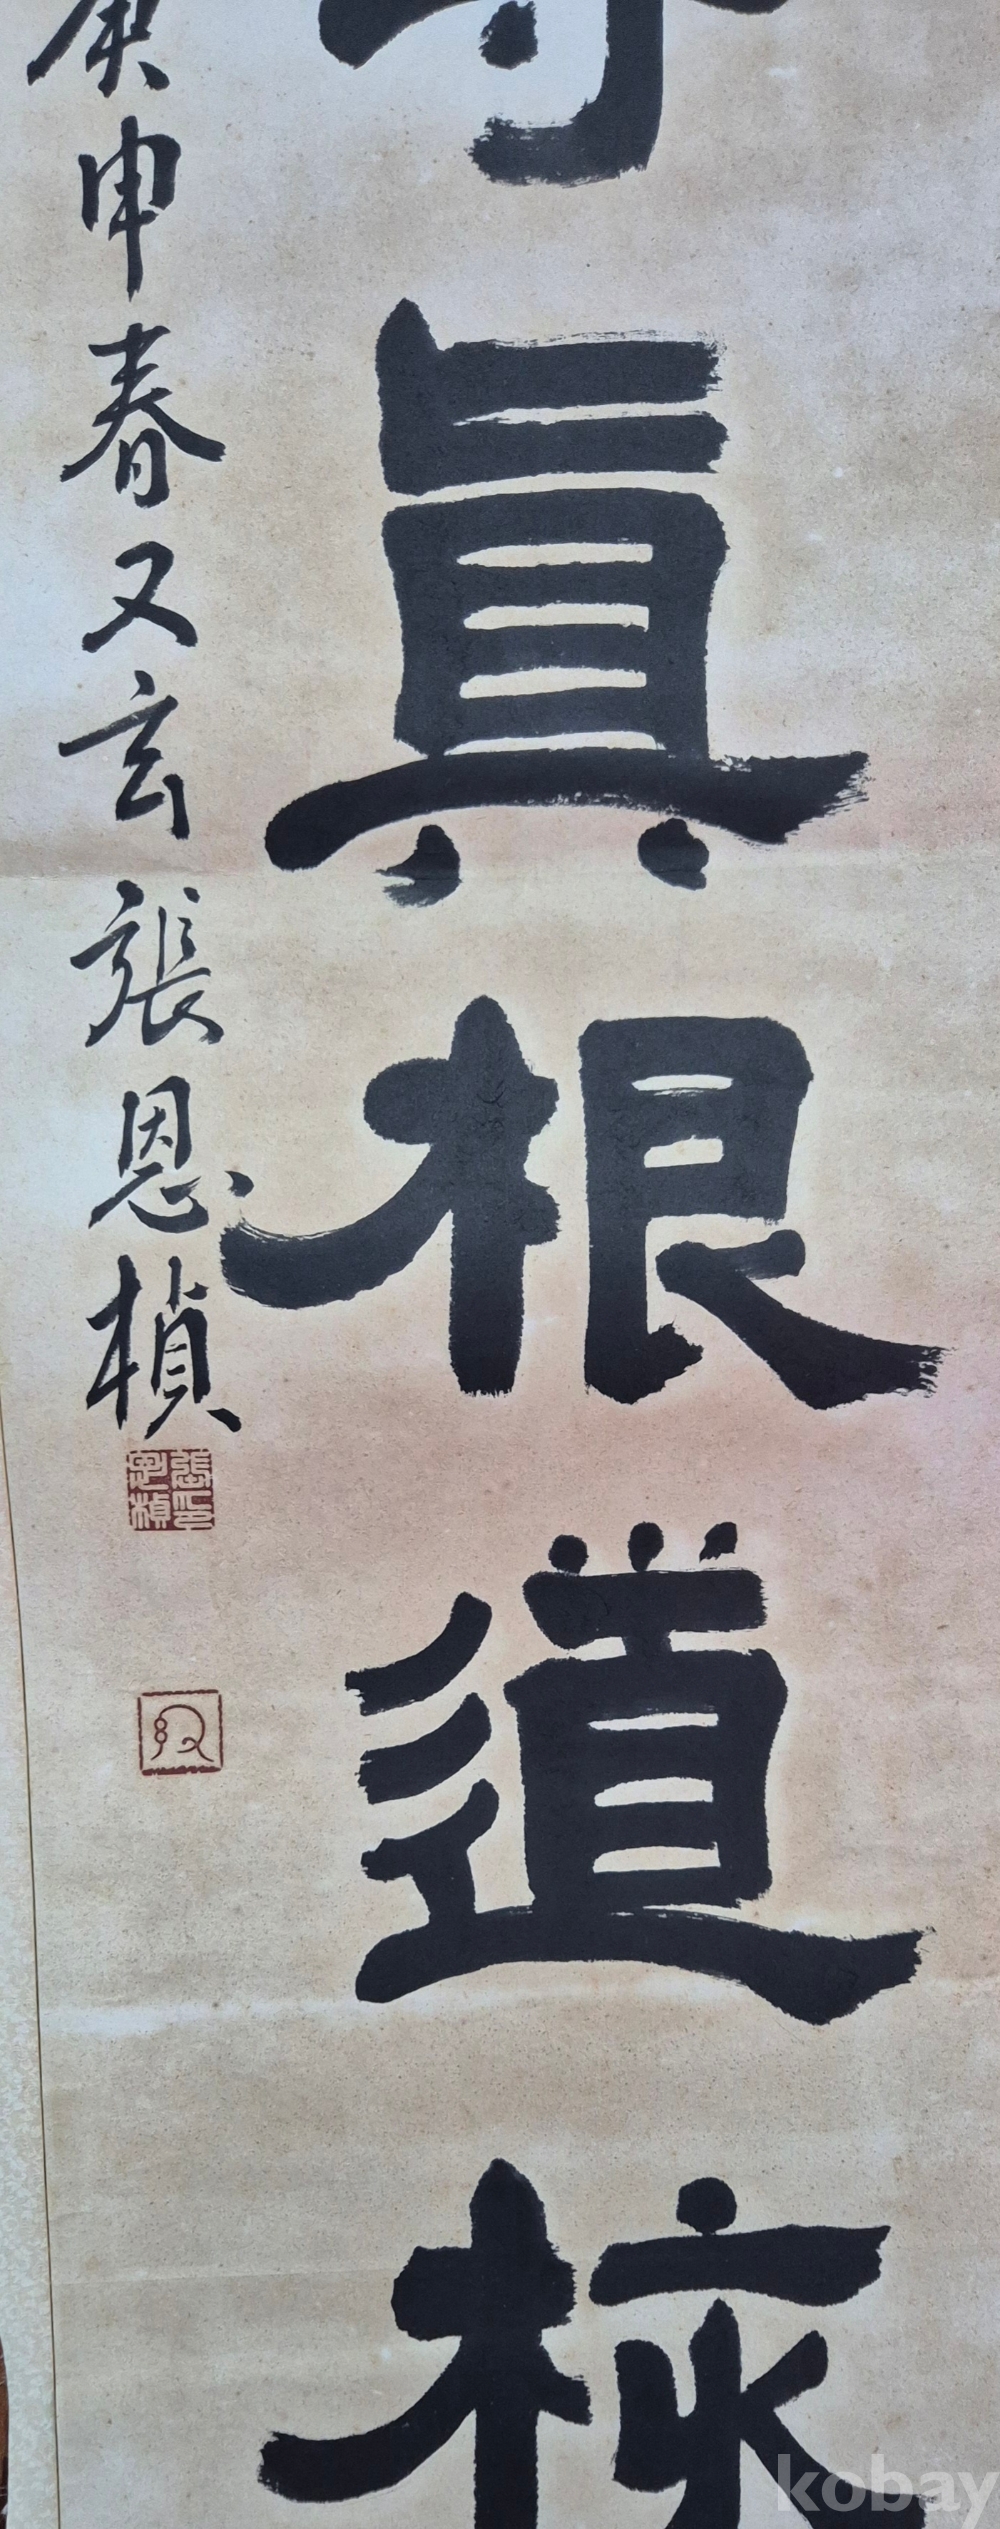 眞根道
庚申春又玄張恩楨
張印恩楨
kobay